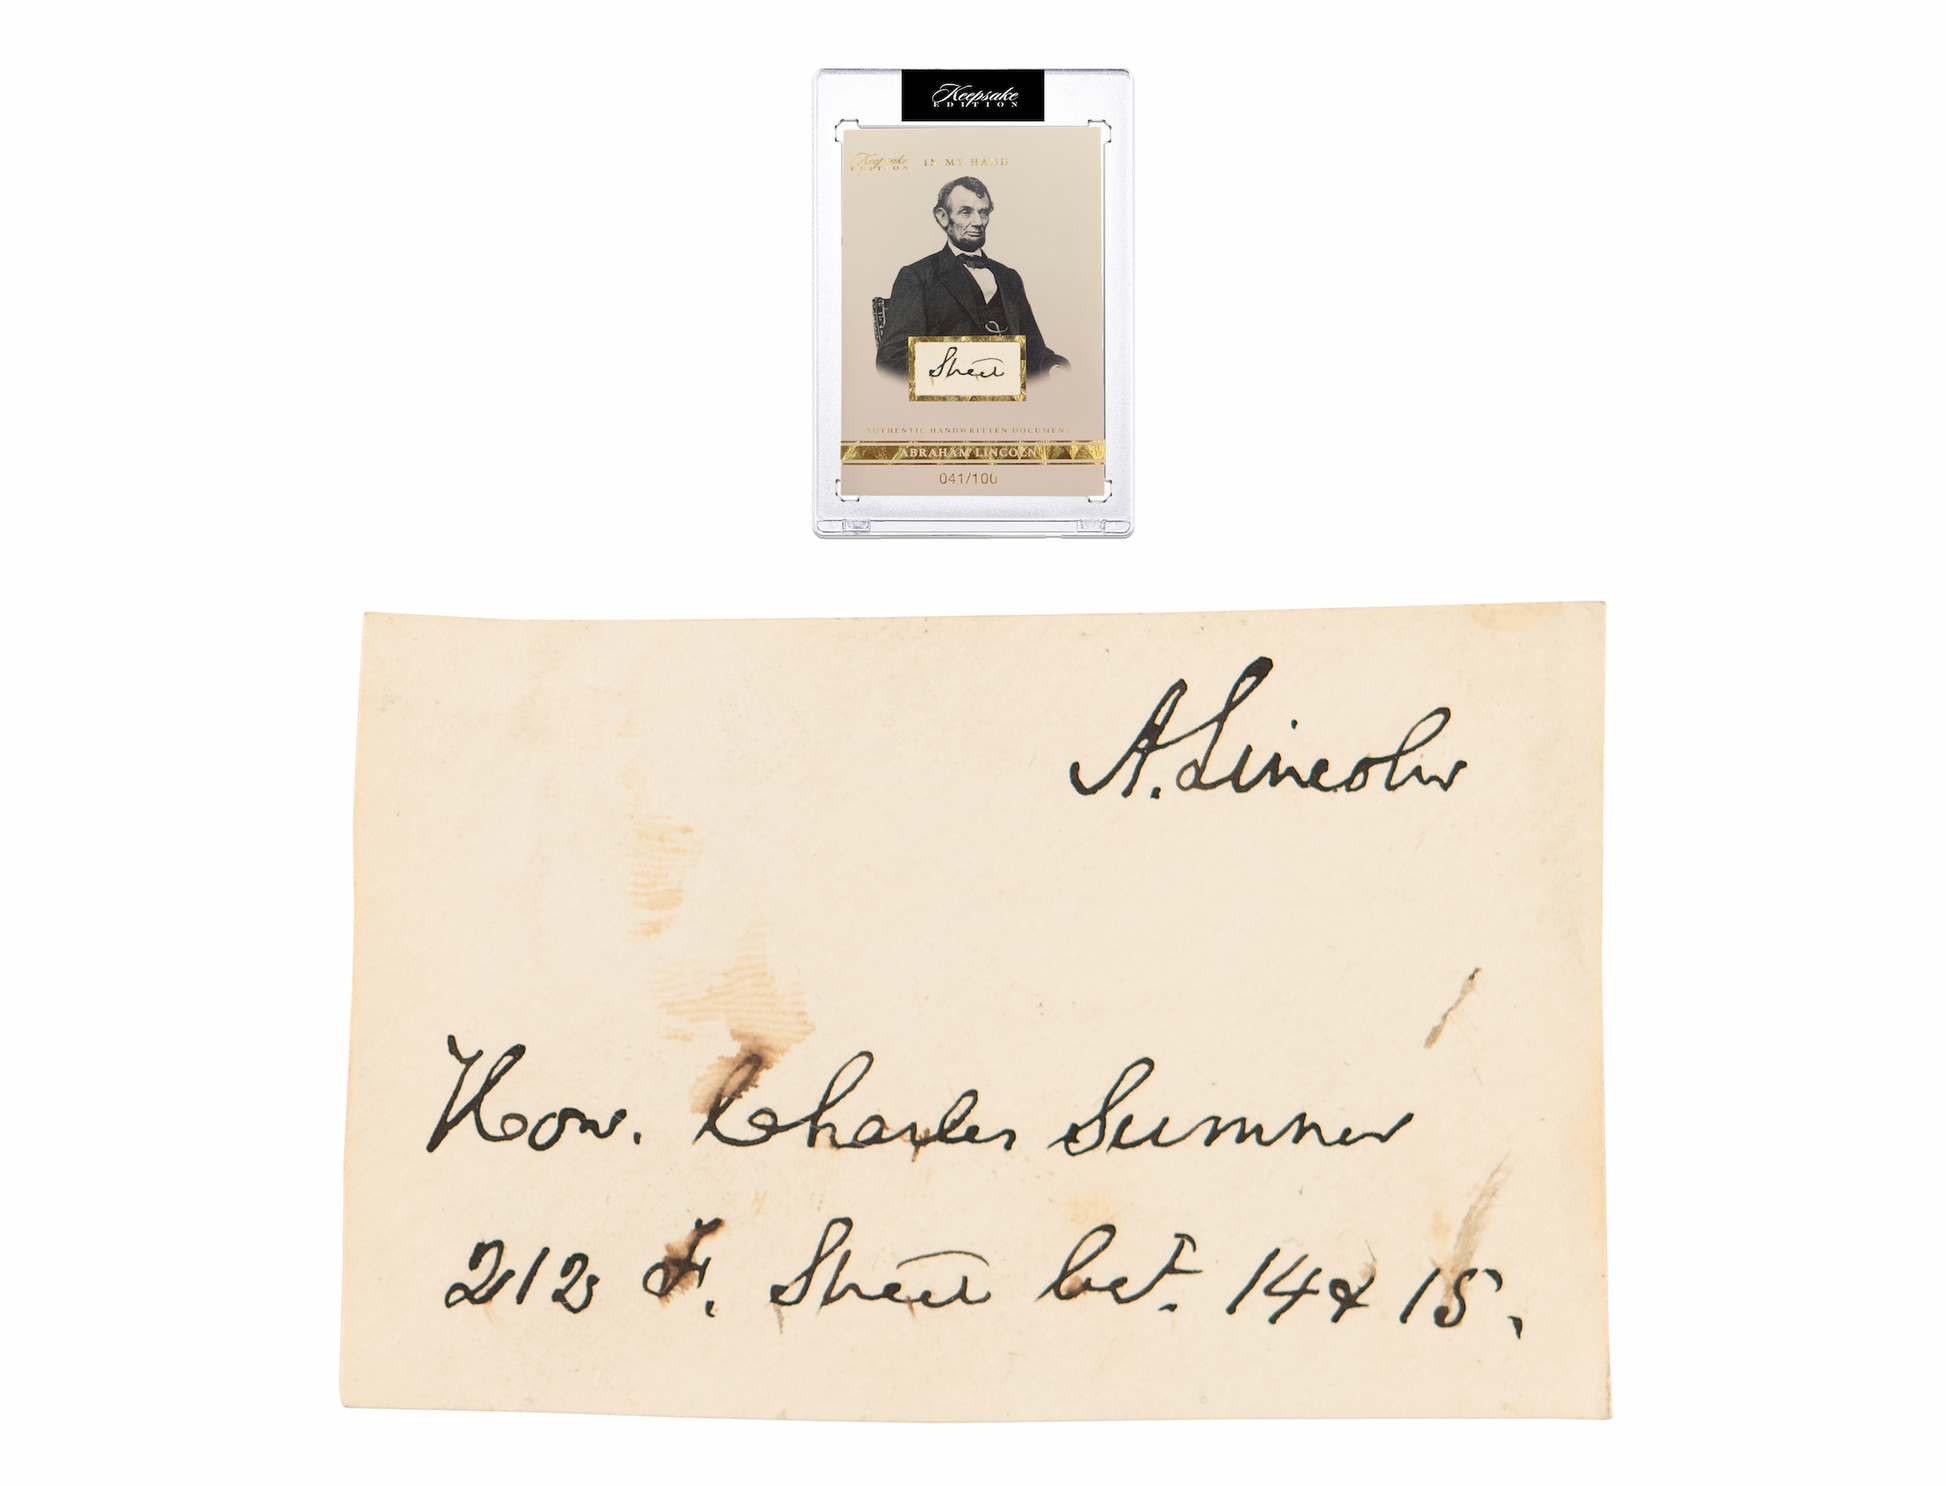 Keepsake
EDITION
Keepsake
EDITION
IN MY HAND
Street
AUTHENTIC HANDWRITTEN DOCUMENT
ABRAHAM LINCOLN
041/100
A. Lincoln
Hon. Charles Sumner
212 F. Street bet. 14 & 15.